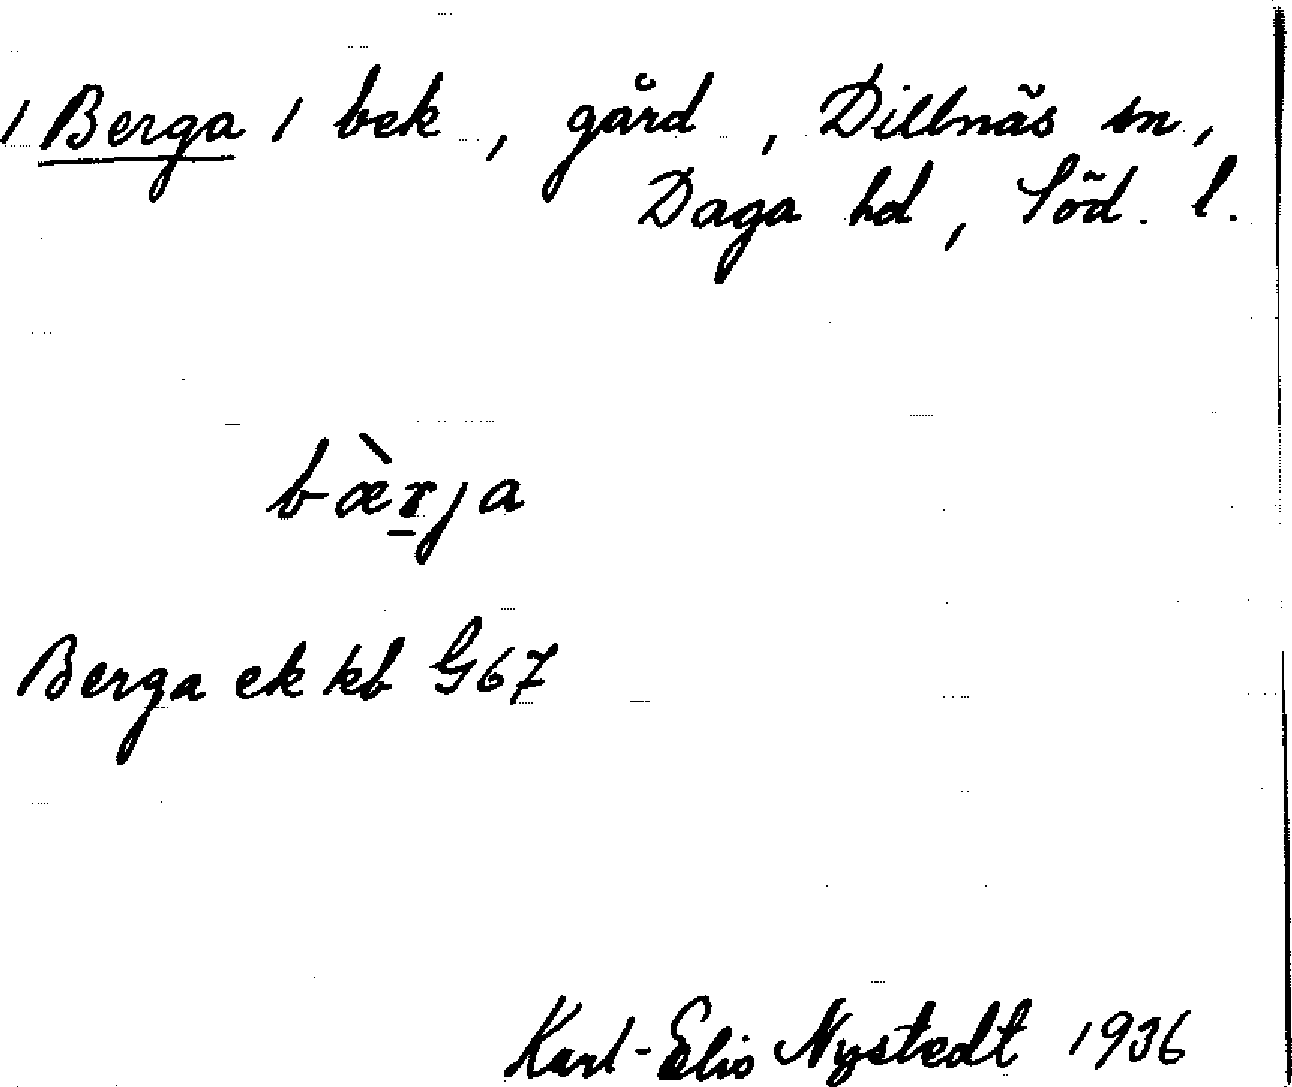 / Berga / bek, gård, Dillnäs sn,
Daga hd, Söd. l.
bæ̀r̲ja
Berga ek kb G67
Karl-Elis Nystedt 1936